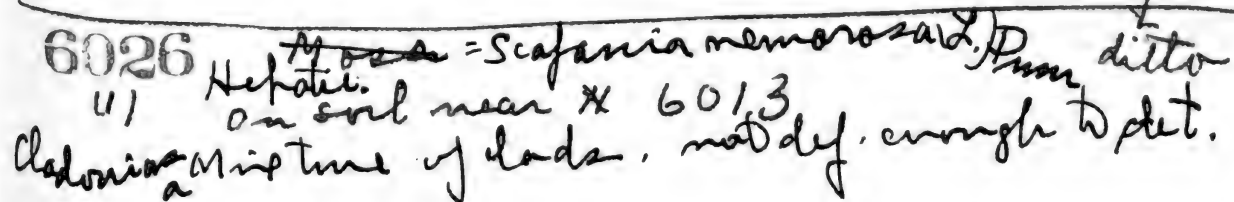 6026 Moss = Scapania nemorosa (L.) Dum ditto
Hepatic.
11) On soil near # 6013
Cladonias a Mixture of clads. not def. enough to det.